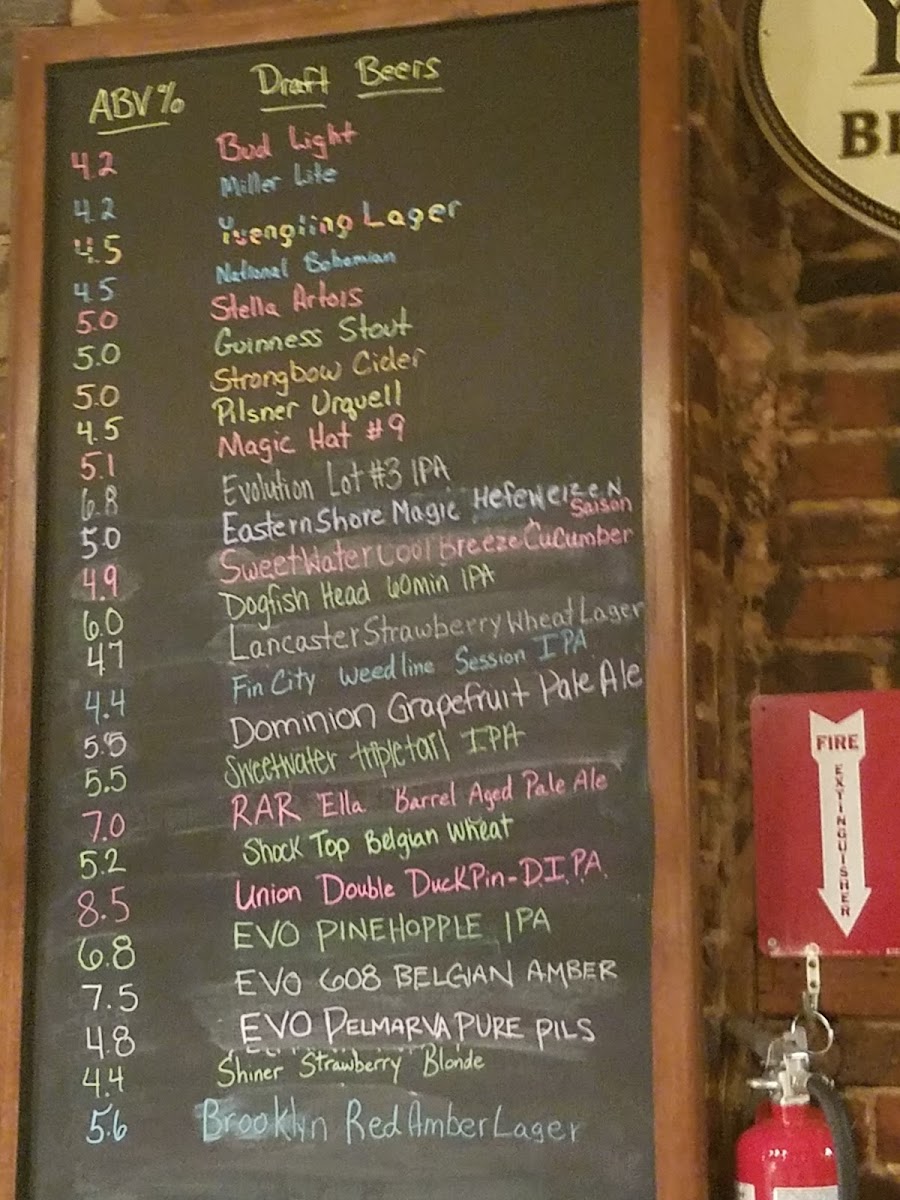 ABV% Draft Beers
4.2 Bud Light
4.2 Miller Lite
4.5 Yuengling Lager
4.5 National Bohemian
5.0 Stella Artois
5.0 Guinness Stout
5.0 Strongbow Cider
4.5 Pilsner Urquell
5.1 Magic Hat #9
6.8 Evolution Lot #3 IPA
5.0 Eastern Shore Magic Hefeweizen
Saison
4.9 SweetWater Cool Breeze Cucumber
6.0 Dogfish Head 60min IPA
4.7 Lancaster Strawberry Wheat Lager
4.4 Fin City Weedline Session IPA
5.5 Dominion Grapefruit Pale Ale
5.5 Sweetwater tripletail IPA
7.0 RAR Ella Barrel Aged Pale Ale
5.2 Shock Top Belgian Wheat
8.5 Union Double DuckPin-D.I.P.A.
6.8 EVO PINEHOPPLE IPA
7.5 EVO 608 BELGIAN AMBER
4.8 EVO DELMARVA PURE PILS
4.4 Shiner Strawberry Blonde
5.6 Brooklyn Red Amber Lager
FIRE
EXTINGUISHER